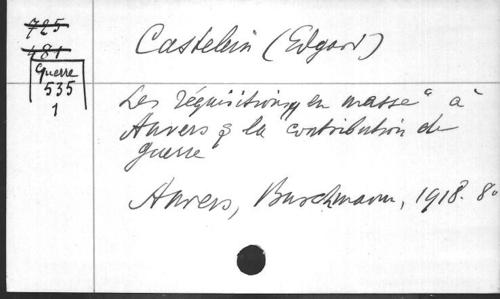 725
481
Guerre
535
1
Castelein (Edgard)
Les réquisitions „en masse“ à
Anvers & la contribution de
guerre
Anvers, Buschmann, 1918. 8°